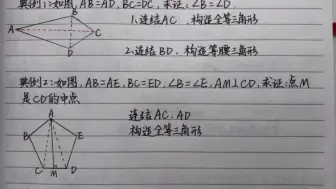 典例1:如图,AB=AD,BC=DC,求证:∠B=∠D
1.连结AC,构造全等三角形
B
A
C
D
2.连结BD,构造等腰三角形
典例2:如图,AB=AE,BC=ED,∠B=∠E,AM⊥CD,求证:点M
是CD的中点
连结AC、AD
构造全等三角形
A
B
E
C M D